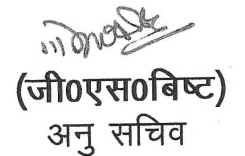 (जी0एस0बिष्ट)
अनु सचिव